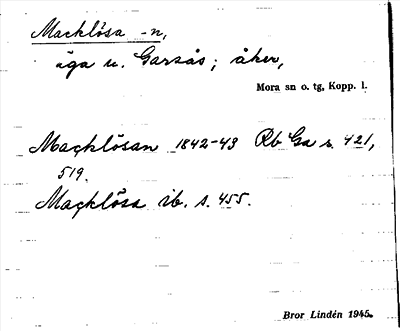 Macklösa -n,
äga u. Garsås; åker,
Mora sn o. tg, Kopp. l.
Maçklösan 1842-43 Rb Ga s. 421,
519.
Maçklösa ib. s. 455.
Bror Lindén 1945.